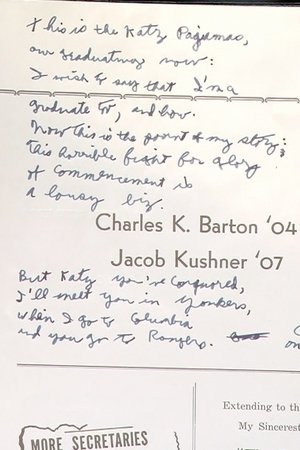 This is the Katz Pajamas,
our graduating now:
I wish to say that I'm a
graduate too, and how.
Now this is the point of my story;
this horrible fight for glory
of Commencement is
a lousy biz.
Charles K. Barton '04
Jacob Kushner '07
But Katz you've conquered,
I'll meet you in Yonkers,
when I go to Columbia
and you go to Rongers.
Extending to th
My Sincerest
MORE SECRETARIES